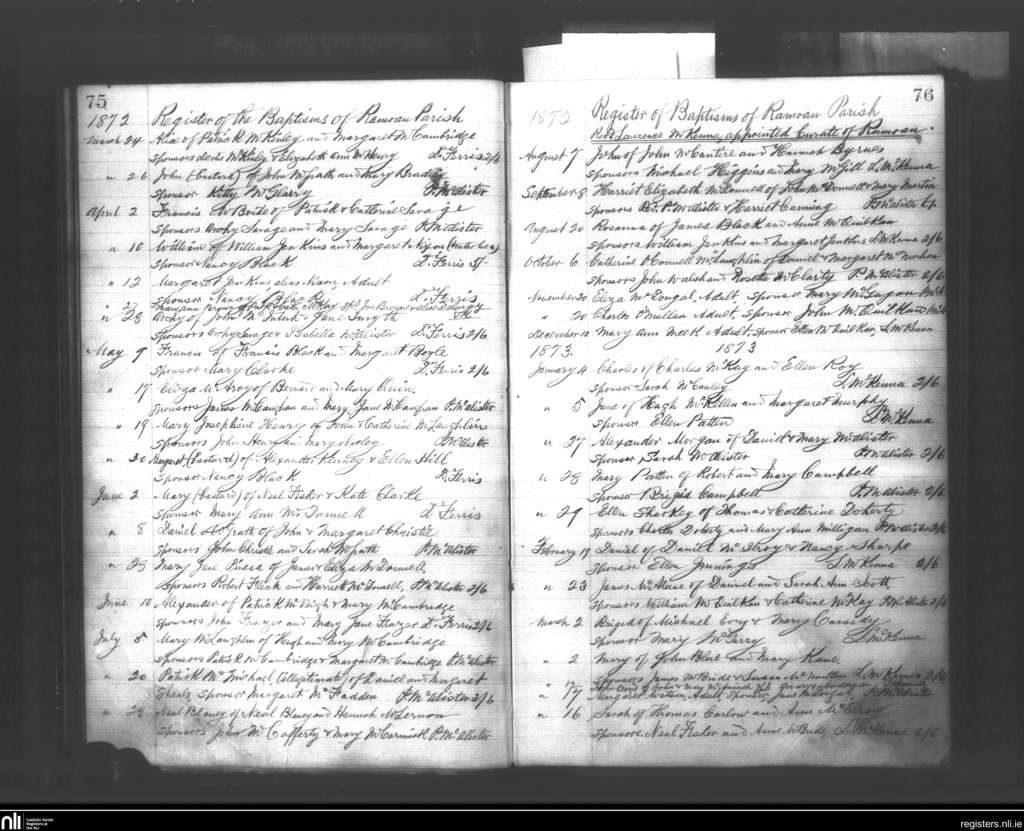 75
1872 Register of the Baptisms of Ramoan Parish
March 24 Alice of Patrick McKinley and Margaret McCambridge
Sponsors McKinley & Elizabeth Ann McHenry D. Ferris 2/6
" 26 John (bastard) of John McGrath and Mary Bradley
Sponsor Kitty McGlarry P. McAlister
April 2 Francis McBride of Patrick & Catherine Savage
Sponsors Archy Savage and Mary Savage P. McAlister
" 10 William of William Jenkins and Margaret Nixon
Sponsor Nancy Black D. Ferris
" 12 Margaret Jenkins alias Nixon Adult
Sponsor Nancy Black D. Ferris
" 27
" 28 Archy of John McIntosh & Jane Smyth
Sponsors Archy Savage & Isabella McAlister D. Ferris 2/6
May 9 Francis of Francis Black and Margaret Boyle
Sponsor Mary Clarke D. Ferris 2/6
" 17 Eliza McAroy of Bernard and Mary Quin
Sponsors James McCaughan and Mary Jane McCaughan P. McAlister
" 19 Mary Josephine Henry of Ivan & Catherine McLaughlin
Sponsors John Henry and Mary P. McAlister
" 20 Margaret (bastard) of Alexander Kinney & Ellen Hill
Sponsor Nancy Black D. Ferris
June 2 Mary (bastard) of Neal Fisher & Kate Clarke
Sponsor Mary Ann McDonnell D. Ferris
" 8 Daniel McGrath of John & Margaret Christie
Sponsors John Christie and Sarah McGrath P. McAlister
" 25 Mary Jane of James & Eliza McDonnell
Sponsors Robert Fleck and Harriet McDonnell, P. McAlister 2/6
June 10 Alexander of Patrick McVeigh & Mary McCambridge
Sponsors John Frazer and Mary Jane Frazer D. Ferris 2/6
July 5 Mary McLaughlin of Hugh and Mary McCambridge
Sponsors Patrick McCambridge & Margaret McCambridge P. McAlister
" 20 Patrick McMichael (illegitimate) of Daniel and Margaret
Sheals Sponsor Margaret McFadden P. McAlister 2/6
" 23 Neal Blaney of Neal Blaney and Hannah McLernon
Sponsors John McCafferty & Mary McCormick P. McAlister
76
1872 Register of Baptisms of Ramoan Parish
Revd. Laurence McKenna, appointed Curate of Ramoan.
August 7 John of John McCantire and Hannah Byrnes
Sponsors Michael Higgins and Mary McGill L. McKenna
September 8 Harriot Elizabeth McDonnell of John McDonnell & Mary Martin
Sponsors Rev. P. McAlister & Harriot Canning P. McAlister
August 20 Rosanna of James Black and Anne McQuilkan
Sponsors William Jenkins and Margaret Jenkins L. McKenna 2/6
October 6 Catherine O'Connell McLaughlin of Daniel & Margaret
Sponsors John Walsh and Rosetta McClarty P. McAlister 2/6
November 20 Eliza McDougal, Adult, Sponsor Mary McGugan
" 20 Charles O'Mullan Adult, Sponsor John McQuilkan
December 10 Mary Ann Meek Adult, Sponsor Ellen McQuilkan, L. McKenna
1873. 1873
January 4 Charles of Charles McKay and Ellen Roy
Sponsor Sarah McCauley L. McKenna 2/6
" 5 Jane of Hugh McKillen and Margaret Murphy
Sponsor Ellen Patten L. McKenna
" 27 Alexander Morgan of David & Mary McAlister
Sponsor Sarah McAlister P. McAlister 2/6
" 28 Mary Patton of Robert and Mary Campbell
Sponsor Brigid Campbell P. McAlister 2/6
" 29 Ellen Sharkey of Thomas & Catherine Doherty
Sponsors Charles Doherty and Mary Ann Milligan P. McAlister 2/6
February 19 Daniel of Daniel McIlroy & Nancy Sharpe
Sponsor Ellen Jennings L. McKenna 2/6
" 23 James McAleese of Daniel and Sarah Ann Scott
Sponsors William McQuilkan & Catherine McKay P. McAlister 2/6
March 2 Brigid of Michael Covey & Mary Cassidy
Sponsor Mary McGarry L. McKenna
" 2 Mary of John Blue and Mary Kane
Sponsors James McBride & Susan McMullan L. McKenna 2/6
" 17 Adult Sponsor Jane McDougal P. McAlister
" 16 Sarah of Thomas Carlow and Ann McElroy
Sponsors Neal Fisher and Anne McBride, L. McKenna 2/6
nli
Catholic Parish
Registers at
the NLI
registers.nli.ie